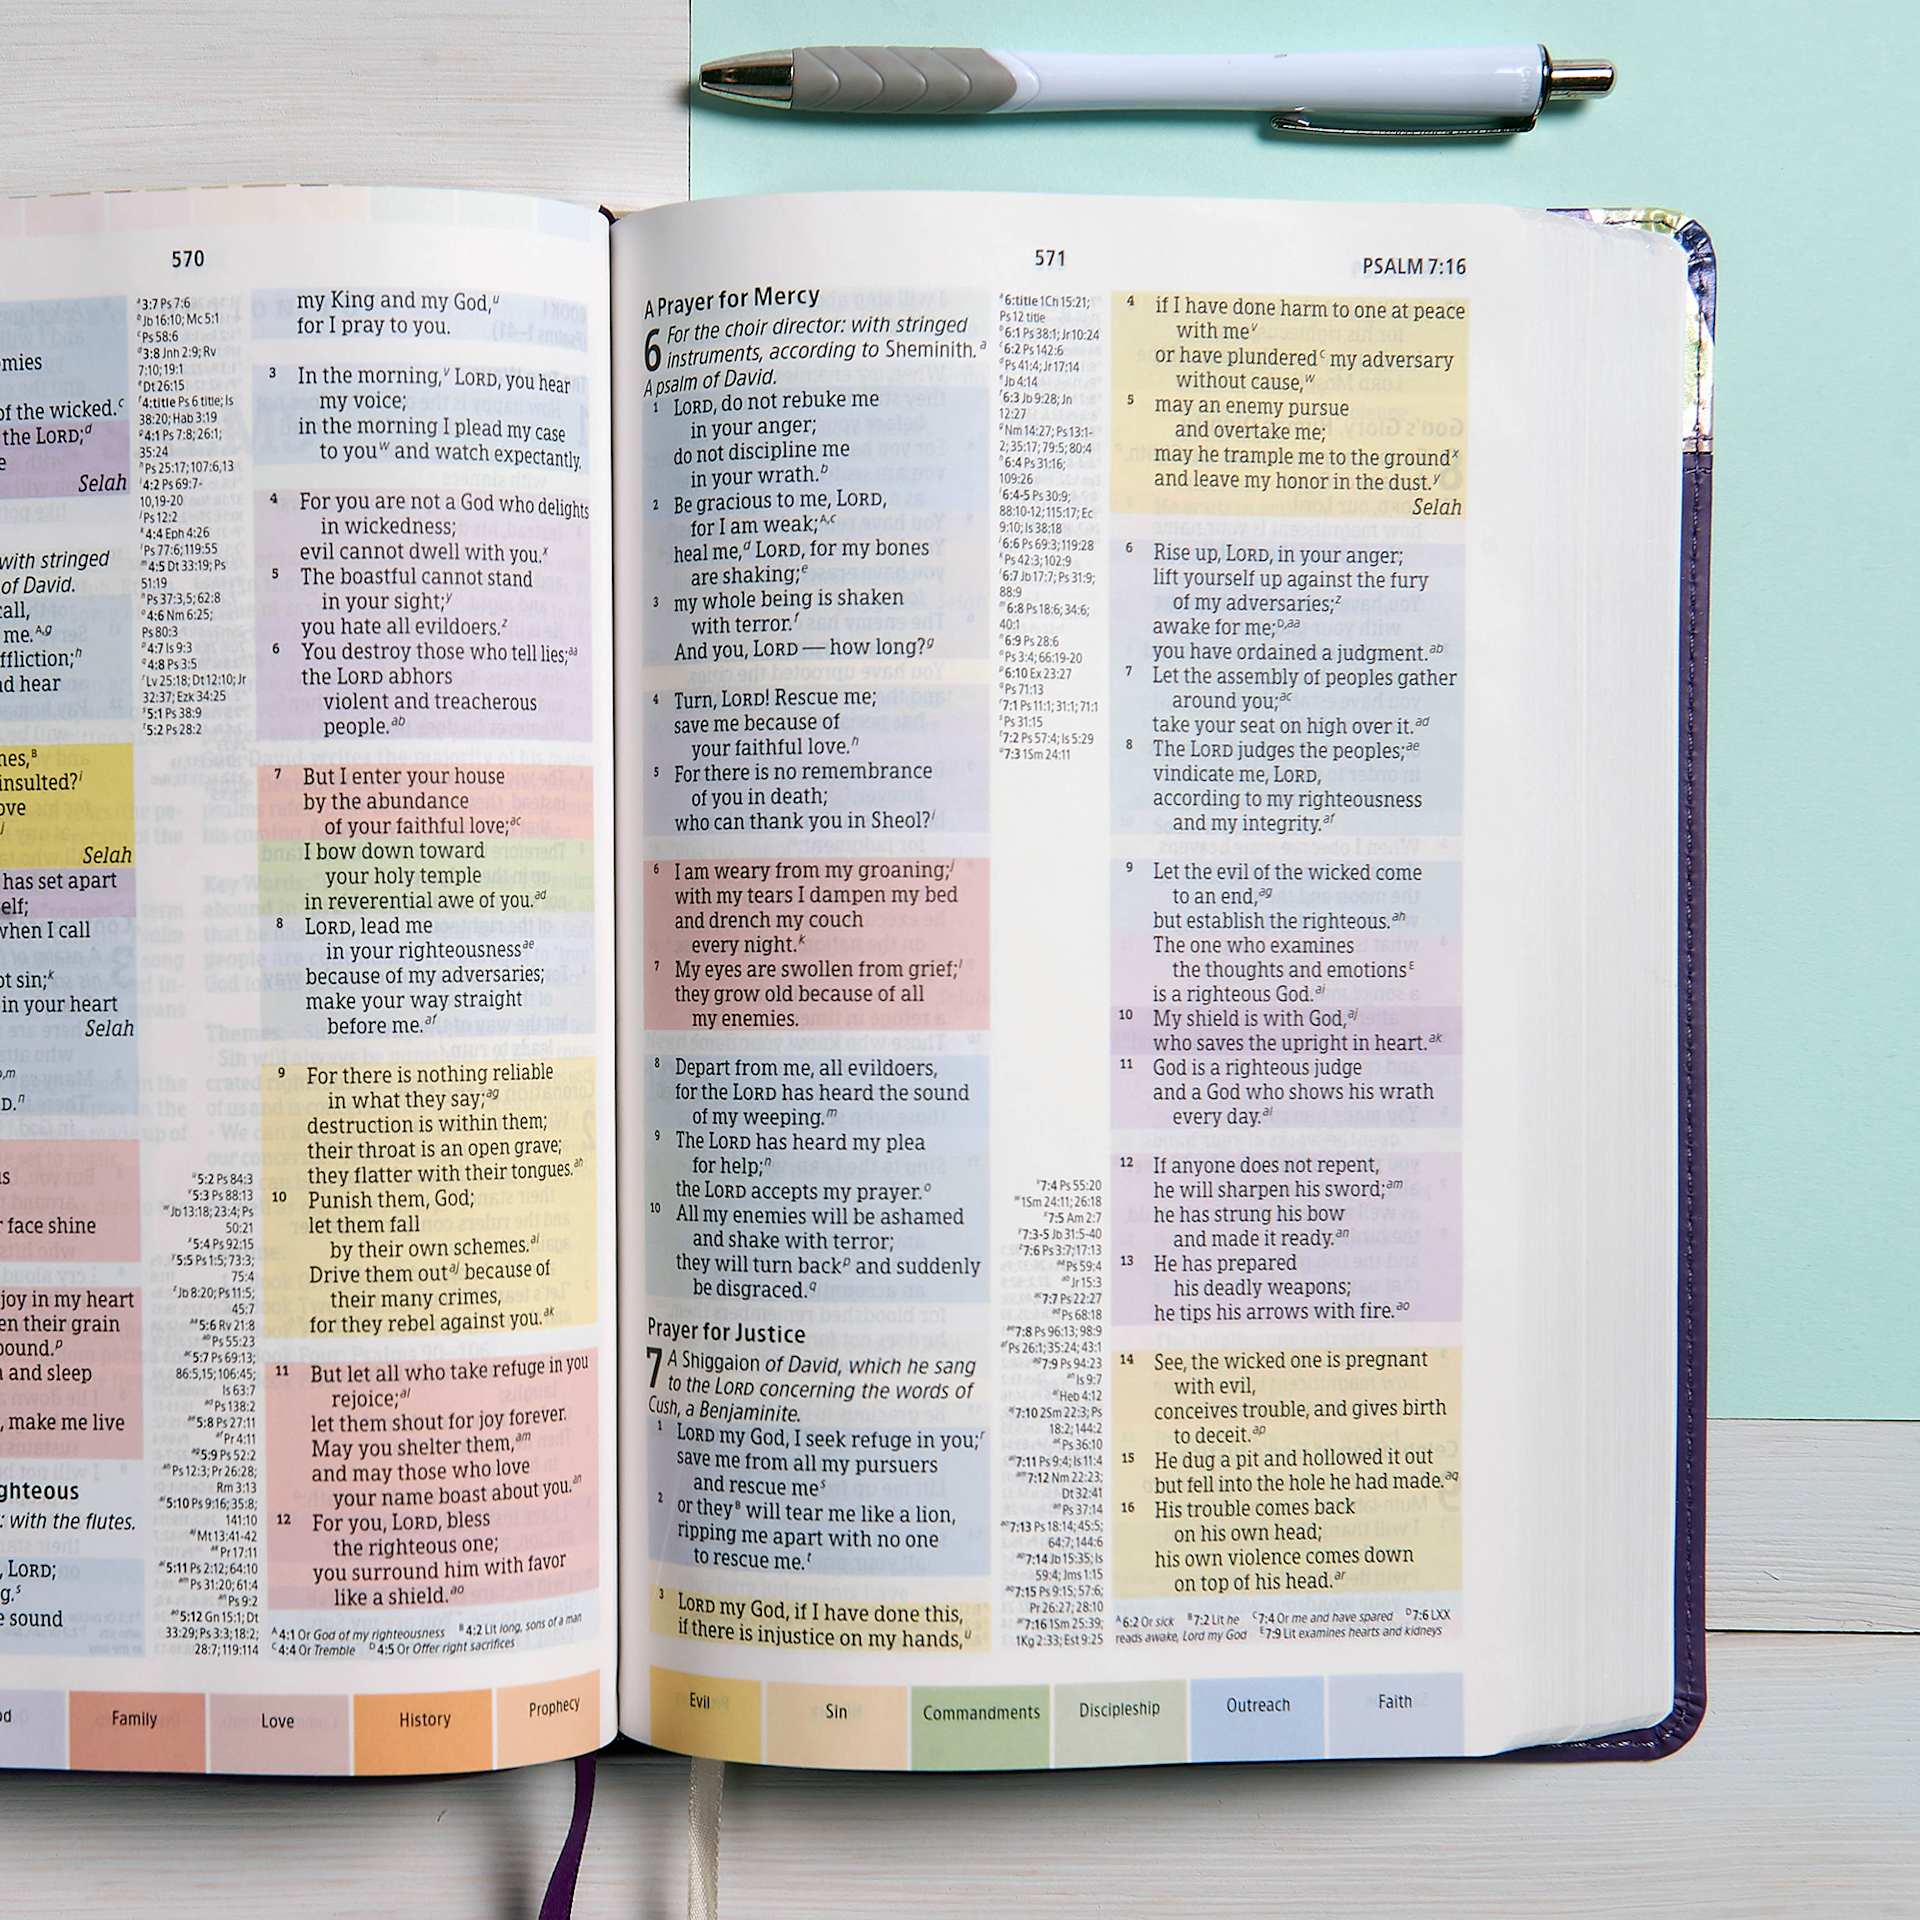 570
emies
of the wicked.ᶜ
the LORD;ᵈ
e
Selah
with stringed
of David.
call,
me.ᴬ,ᵍ
ffliction;ʰ
nd hear
nes,ᴮ
insulted?ⁱ
ove
j
Selah
has set apart
self;
when I call
ot sin;ᵏ
in your heart
Selah
D.ⁿ
us
face shine
joy in my heart
en their grain
bound.ᵖ
and sleep
, make me live
ghteous
: with the flutes.
, LORD;
g.ˢ
e sound
3:7 Ps 7:6
Jb 16:10; Mc 5:1
Ps 58:6
3:8 Jnh 2:9; Rv
7:10; 19:1
Dt 26:15
4:title Ps 6 title; Is
38:20; Hab 3:19
4:1 Ps 7:8; 26:1;
35:24
Ps 25:17; 107:6,13
4:2 Ps 69:7-
10,19-20
Ps 12:2
4:4 Eph 4:26
Ps 77:6; 119:55
4:5 Dt 33:19; Ps
51:19
Ps 37:3,5; 62:8
4:6 Nm 6:25;
Ps 80:3
4:7 Is 9:3
4:8 Ps 3:5
Lv 25:18; Dt 12:10; Jr
32:37; Ezk 34:25
5:1 Ps 38:9
5:2 Ps 28:2
5:2 Ps 84:3
5:3 Ps 88:13
Jb 13:18; 23:4; Ps
50:21
5:4 Ps 92:15
5:5 Ps 1:5; 73:3;
75:4
Jb 8:20; Ps 11:5;
45:7
5:6 Rv 21:8
Ps 55:23
5:7 Ps 69:13;
86:5,15; 106:45;
Is 63:7
Ps 138:2
5:8 Ps 27:11
Pr 4:11
5:9 Ps 52:2
Ps 12:3; Pr 26:28;
Rm 3:13
5:10 Ps 9:16; 35:8;
141:10
Mt 13:41-42
Pr 17:11
5:11 Ps 2:12; 64:10
Ps 31:20; 61:4
Ps 9:2
5:12 Gn 15:1; Dt
33:29; Ps 3:3; 18:2;
28:7; 119:114
my King and my God,ᵘ
for I pray to you.
3 In the morning,ᵛ LORD, you hear
my voice;
in the morning I plead my case
to youʷ and watch expectantly.
4 For you are not a God who delights
in wickedness;
evil cannot dwell with you.ˣ
5 The boastful cannot stand
in your sight;ʸ
you hate all evildoers.ᶻ
6 You destroy those who tell lies;ᵃᵃ
the LORD abhors
violent and treacherous
people.ᵃᵇ
7 But I enter your house
by the abundance
of your faithful love;ᵃᶜ
I bow down toward
your holy temple
in reverential awe of you.ᵃᵈ
8 LORD, lead me
in your righteousnessᵃᵉ
because of my adversaries;
make your way straight
before me.ᵃᶠ
9 For there is nothing reliable
in what they say;ᵃᵍ
destruction is within them;
their throat is an open grave;
they flatter with their tongues.ᵃʰ
10 Punish them, God;
let them fall
by their own schemes.ᵃⁱ
Drive them outᵃʲ because of
their many crimes,
for they rebel against you.ᵃᵏ
11 But let all who take refuge in you
rejoice;ᵃˡ
let them shout for joy forever.
May you shelter them,ᵃᵐ
and may those who love
your name boast about you.ᵃⁿ
12 For you, LORD, bless
the righteous one;
you surround him with favor
like a shield.ᵃᵒ
ᴬ4:1 Or God of my righteousness ᴮ4:2 Lit long, sons of a man
ᶜ4:4 Or Tremble ᴰ4:5 Or Offer right sacrifices
Family Love History Prophecy
571
PSALM 7:16
A Prayer for Mercy
6 For the choir director: with stringed
instruments, according to Sheminith.ᵃ
A psalm of David.
1 LORD, do not rebuke me
in your anger;
do not discipline me
in your wrath.ᵇ
2 Be gracious to me, LORD,
for I am weak;ᴬ,ᶜ
heal me,ᵈ LORD, for my bones
are shaking;ᵉ
3 my whole being is shaken
with terror.ᶠ
And you, LORD — how long?ᵍ
4 Turn, LORD! Rescue me;
save me because of
your faithful love.ʰ
5 For there is no remembrance
of you in death;
who can thank you in Sheol?ⁱ
6 I am weary from my groaning;ʲ
with my tears I dampen my bed
and drench my couch
every night.ᵏ
7 My eyes are swollen from grief;ˡ
they grow old because of all
my enemies.
8 Depart from me, all evildoers,
for the LORD has heard the sound
of my weeping.ᵐ
9 The LORD has heard my plea
for help;ⁿ
the LORD accepts my prayer.ᵒ
10 All my enemies will be ashamed
and shake with terror;
they will turn backᵖ and suddenly
be disgraced.q
Prayer for Justice
7 A Shiggaion of David, which he sang
to the LORD concerning the words of
Cush, a Benjaminite.
1 LORD my God, I seek refuge in you;ʳ
save me from all my pursuers
and rescue meˢ
2 or theyᴮ will tear me like a lion,
ripping me apart with no one
to rescue me.ᵗ
3 LORD my God, if I have done this,
if there is injustice on my hands,ᵘ
6:title 1Ch 15:21;
Ps 12 title
6:1 Ps 38:1; Jr 10:24
6:2 Ps 142:6
Ps 41:4; Jr 17:14
Jb 4:14
6:3 Jb 9:28; Jn
12:27
Nm 14:27; Ps 13:1-
2; 35:17; 79:5; 80:4
6:4 Ps 31:16;
109:26
6:4-5 Ps 30:9;
88:10-12; 115:17; Ec
9:10; Is 38:18
6:6 Ps 69:3; 119:28
Ps 42:3; 102:9
6:7 Jb 17:7; Ps 31:9;
88:9
6:8 Ps 18:6; 34:6;
40:1
6:9 Ps 28:6
Ps 3:4; 66:19-20
6:10 Ex 23:27
Ps 71:13
7:1 Ps 11:1; 31:1; 71:1
Ps 31:15
7:2 Ps 57:4; Is 5:29
7:3 1Sm 24:11
7:4 Ps 55:20
1Sm 24:11; 26:18
7:5 Am 2:7
7:3-5 Jb 31:5-40
7:6 Ps 3:7; 17:13
Ps 59:4
Jr 15:3
7:7 Ps 22:27
Ps 68:18
7:8 Ps 96:13; 98:9
Ps 26:1; 35:24; 43:1
7:9 Ps 94:23
Is 9:7
Heb 4:12
7:10 2Sm 22:3; Ps
18:2; 144:2
Ps 36:10
7:11 Ps 9:4; Is 11:4
7:12 Nm 22:23;
Dt 32:41
Ps 37:14
7:13 Ps 18:14; 45:5;
64:7; 144:6
7:14 Jb 15:35; Is
59:4; Jms 1:15
7:15 Ps 9:15; 57:6;
Pr 26:27; 28:10
7:16 1Sm 25:39;
1Kg 2:33; Est 9:25
4 if I have done harm to one at peace
with meᵛ
or have plunderedᶜ my adversary
without cause,ʷ
5 may an enemy pursue
and overtake me;
may he trample me to the groundˣ
and leave my honor in the dust.ʸ
Selah
6 Rise up, LORD, in your anger;
lift yourself up against the fury
of my adversaries;ᶻ
awake for me;ᴰ,ᵃᵃ
you have ordained a judgment.ᵃᵇ
7 Let the assembly of peoples gather
around you;ᵃᶜ
take your seat on high over it.ᵃᵈ
8 The LORD judges the peoples;ᵃᵉ
vindicate me, LORD,
according to my righteousness
and my integrity.ᵃᶠ
9 Let the evil of the wicked come
to an end,ᵃᵍ
but establish the righteous.ᵃʰ
The one who examines
the thoughts and emotionsᴱ
is a righteous God.ᵃⁱ
10 My shield is with God,ᵃʲ
who saves the upright in heart.ᵃᵏ
11 God is a righteous judge
and a God who shows his wrath
every day.ᵃˡ
12 If anyone does not repent,
he will sharpen his sword;ᵃᵐ
he has strung his bow
and made it ready.ᵃⁿ
13 He has prepared
his deadly weapons;
he tips his arrows with fire.ᵃᵒ
14 See, the wicked one is pregnant
with evil,
conceives trouble, and gives birth
to deceit.ᵃᵖ
15 He dug a pit and hollowed it out
but fell into the hole he had made.aq
16 His trouble comes back
on his own head;
his own violence comes down
on top of his head.ᵃʳ
ᴬ6:2 Or sick ᴮ7:2 Lit he ᶜ7:4 Or me and have spared ᴰ7:6 LXX
reads awake, Lord my God ᴱ7:9 Lit examines hearts and kidneys
Evil Sin Commandments Discipleship Outreach Faith